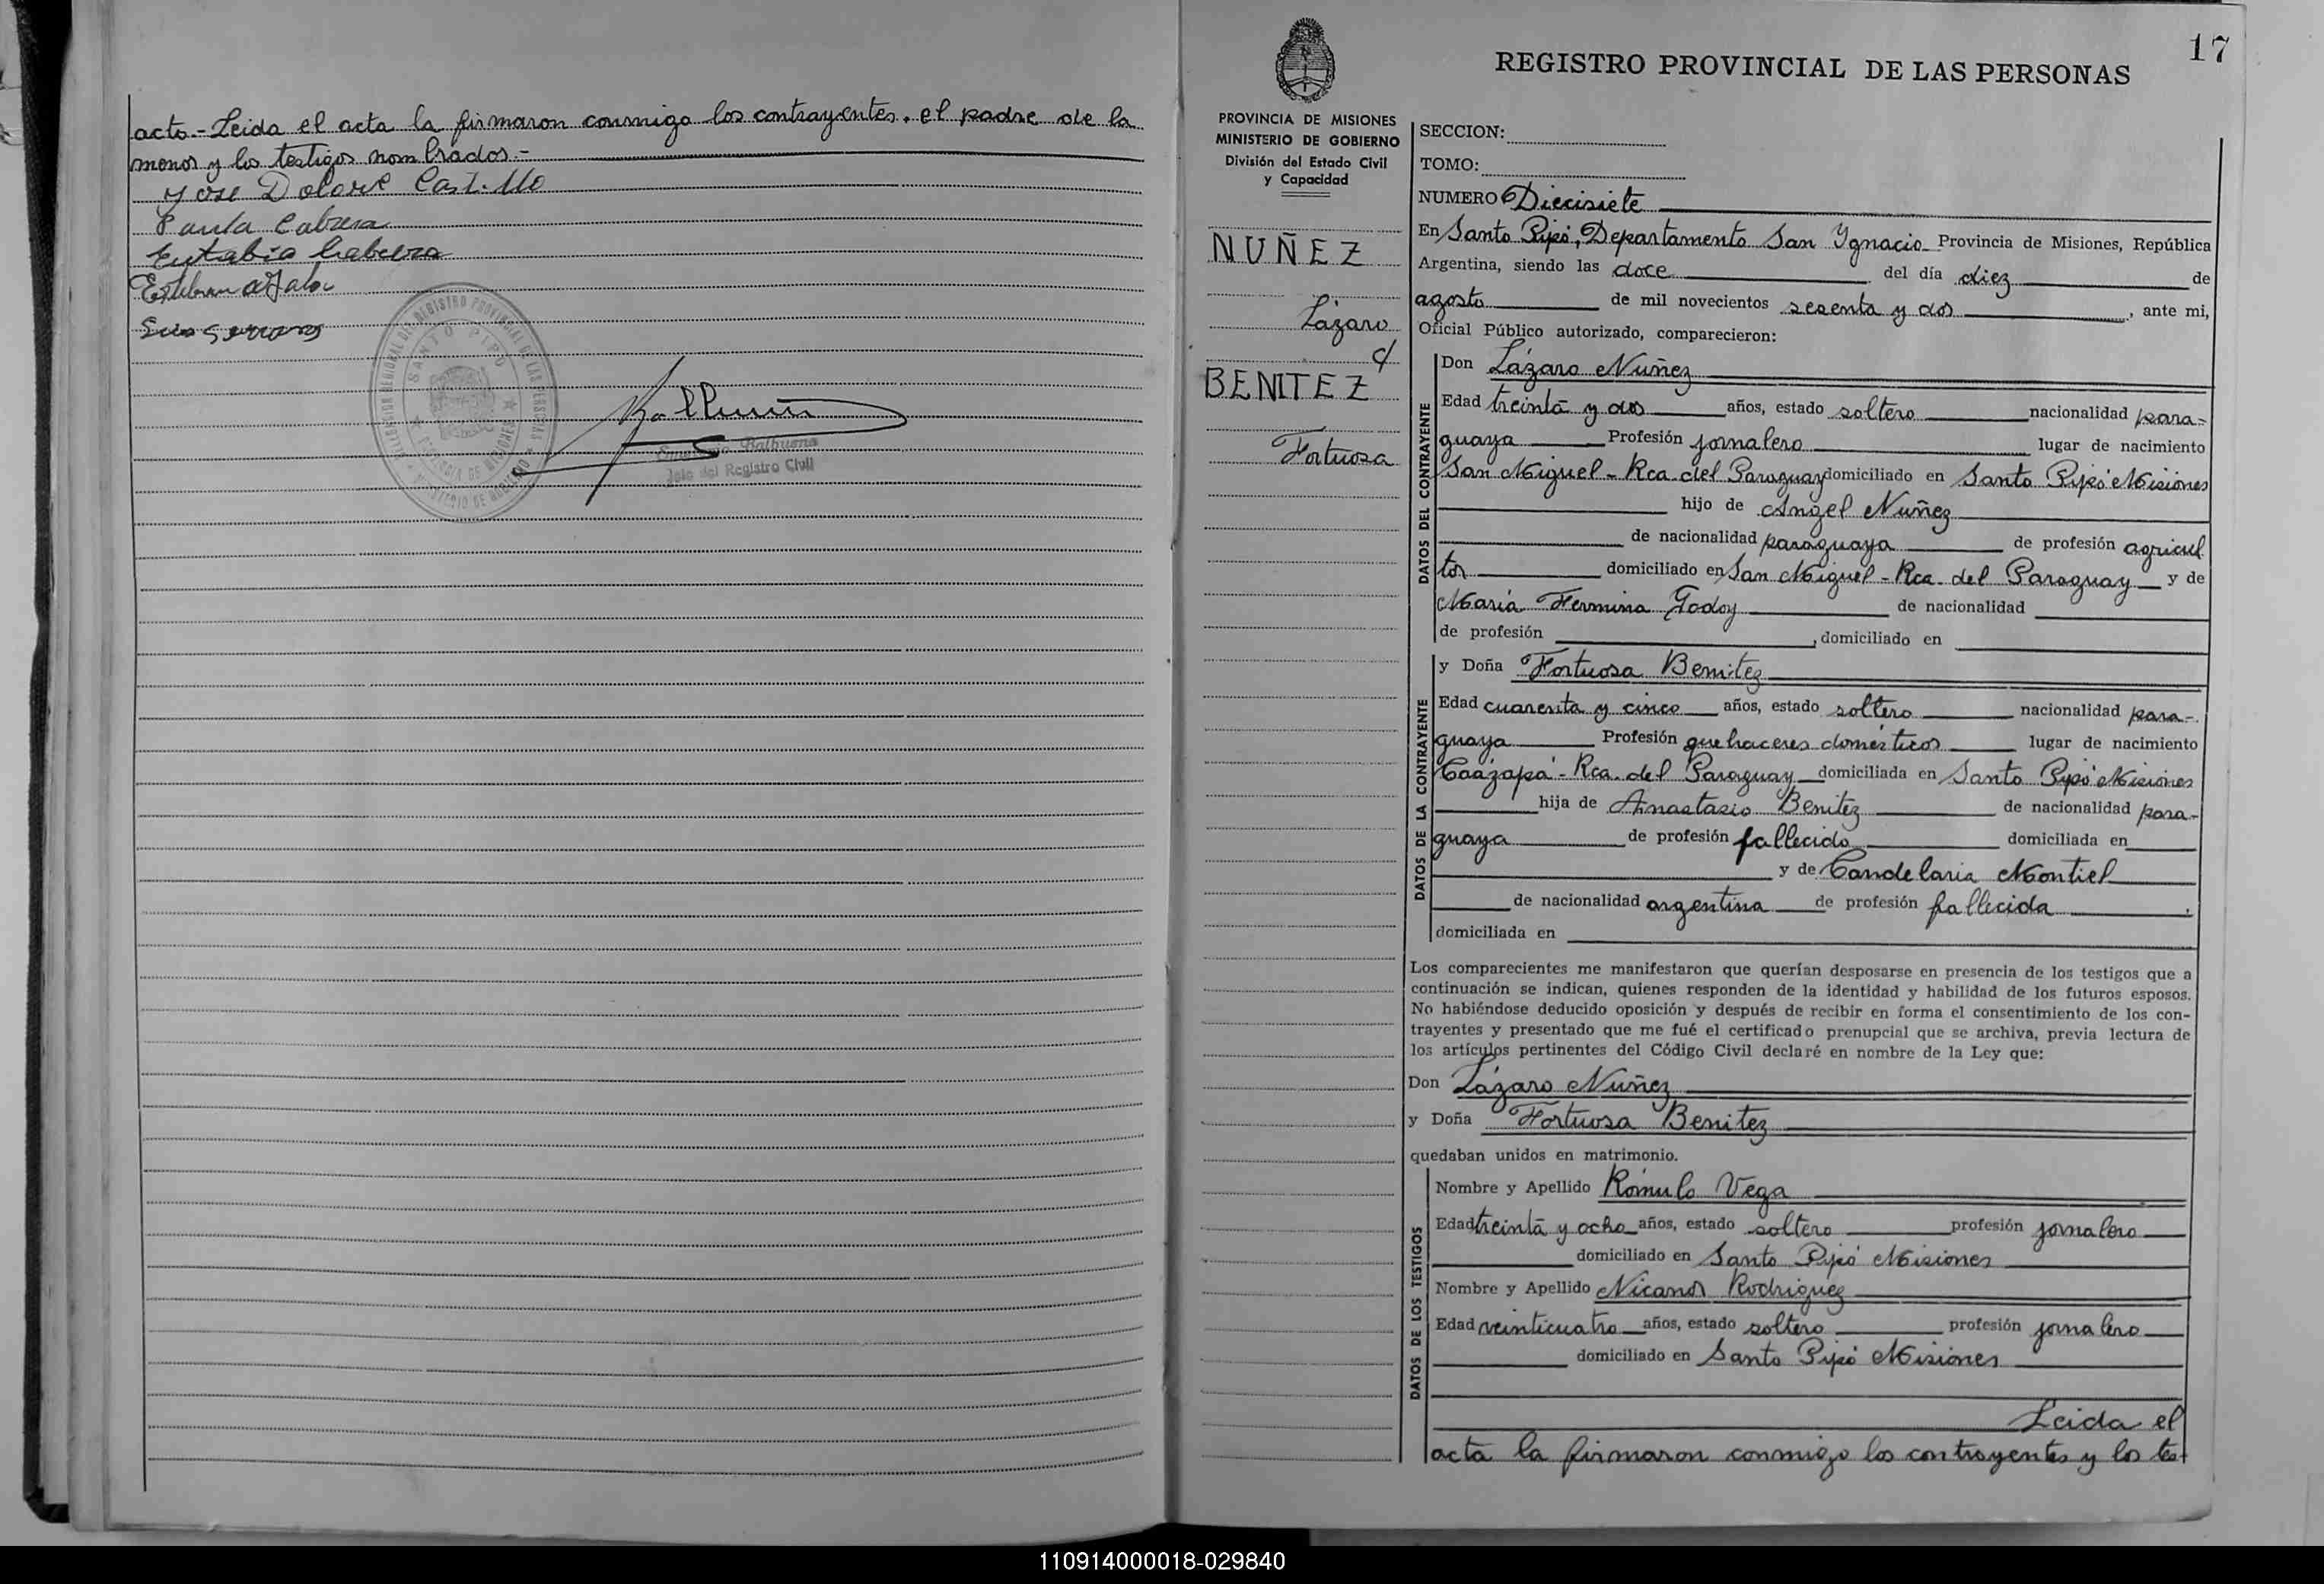 acto.- Leida el acta la firmaron conmigo los contrayentes, el padre de la
menor y los testigos nombrados.-
Jose Dolore Castillo
Paula Cabrera
Eutabia Cabrera
Esteban
Luis
SANTO PIPO
Balbuena
Jefe del Registro Civil
17
REGISTRO PROVINCIAL DE LAS PERSONAS
PROVINCIA DE MISIONES
MINISTERIO DE GOBIERNO
División del Estado Civil
y Capacidad
NUÑEZ
Lázaro
c/
BENITEZ
Fortuosa
SECCION:
TOMO:
NUMERO Diecisiete
En Santo Pipó, Departamento San Ygnacio Provincia de Misiones, República
Argentina, siendo las doce del día diez de
agosto de mil novecientos sesenta y dos, ante mi,
Oficial Público autorizado, comparecieron:
DATOS DEL CONTRAYENTE
Don Lázaro Nuñez
Edad treinta y dos años, estado soltero nacionalidad para-
guaya Profesión jornalero lugar de nacimiento
San Miguel - Rca. del Paraguay domiciliado en Santo Pipó Misiones
hijo de Angel Nuñez
de nacionalidad paraguaya de profesión agricul
tor domiciliado en San Miguel - Rca. del Paraguay y de
María Fermina Godoy de nacionalidad
de profesión , domiciliado en
DATOS DE LA CONTRAYENTE
y Doña Fortuosa Benitez
Edad cuarenta y cinco años, estado soltero nacionalidad para-
guaya Profesión quehaceres domésticos lugar de nacimiento
Caázapá - Rca. del Paraguay domiciliada en Santo Pipó Misiones
hija de Anastasio Benitez de nacionalidad para-
guaya de profesión fallecido domiciliada en
y de Candelaria Montiel
de nacionalidad argentina de profesión fallecida.
domiciliada en
Los comparecientes me manifestaron que querían desposarse en presencia de los testigos que a
continuación se indican, quienes responden de la identidad y habilidad de los futuros esposos.
No habiéndose deducido oposición y después de recibir en forma el consentimiento de los con-
trayentes y presentado que me fué el certificado prenupcial que se archiva, previa lectura de
los artículos pertinentes del Código Civil declaré en nombre de la Ley que:
Don Lázaro Nuñez
y Doña Fortuosa Benitez
quedaban unidos en matrimonio.
DATOS DE LOS TESTIGOS
Nombre y Apellido Rómulo Vega
Edad treinta y ocho años, estado soltero profesión jornalero
domiciliado en Santo Pipó Misiones
Nombre y Apellido Nicanor Rodriguez
Edad veinticuatro años, estado soltero profesión jornalero
domiciliado en Santo Pipó Misiones
Leida el
acta la firmaron conmigo los contrayentes y los tes-
110914000018-029840